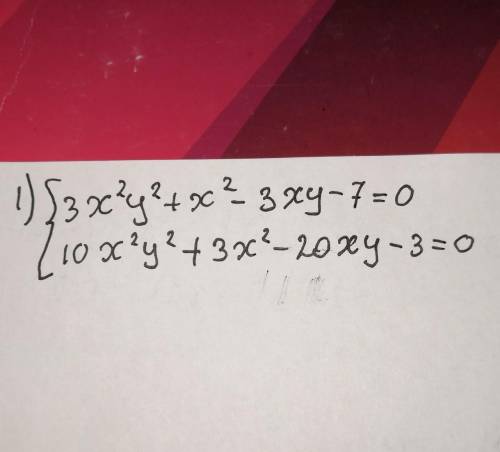 1) { 3x²y² + x² - 3xy - 7 = 0
10x²y² + 3x² - 20xy - 3 = 0